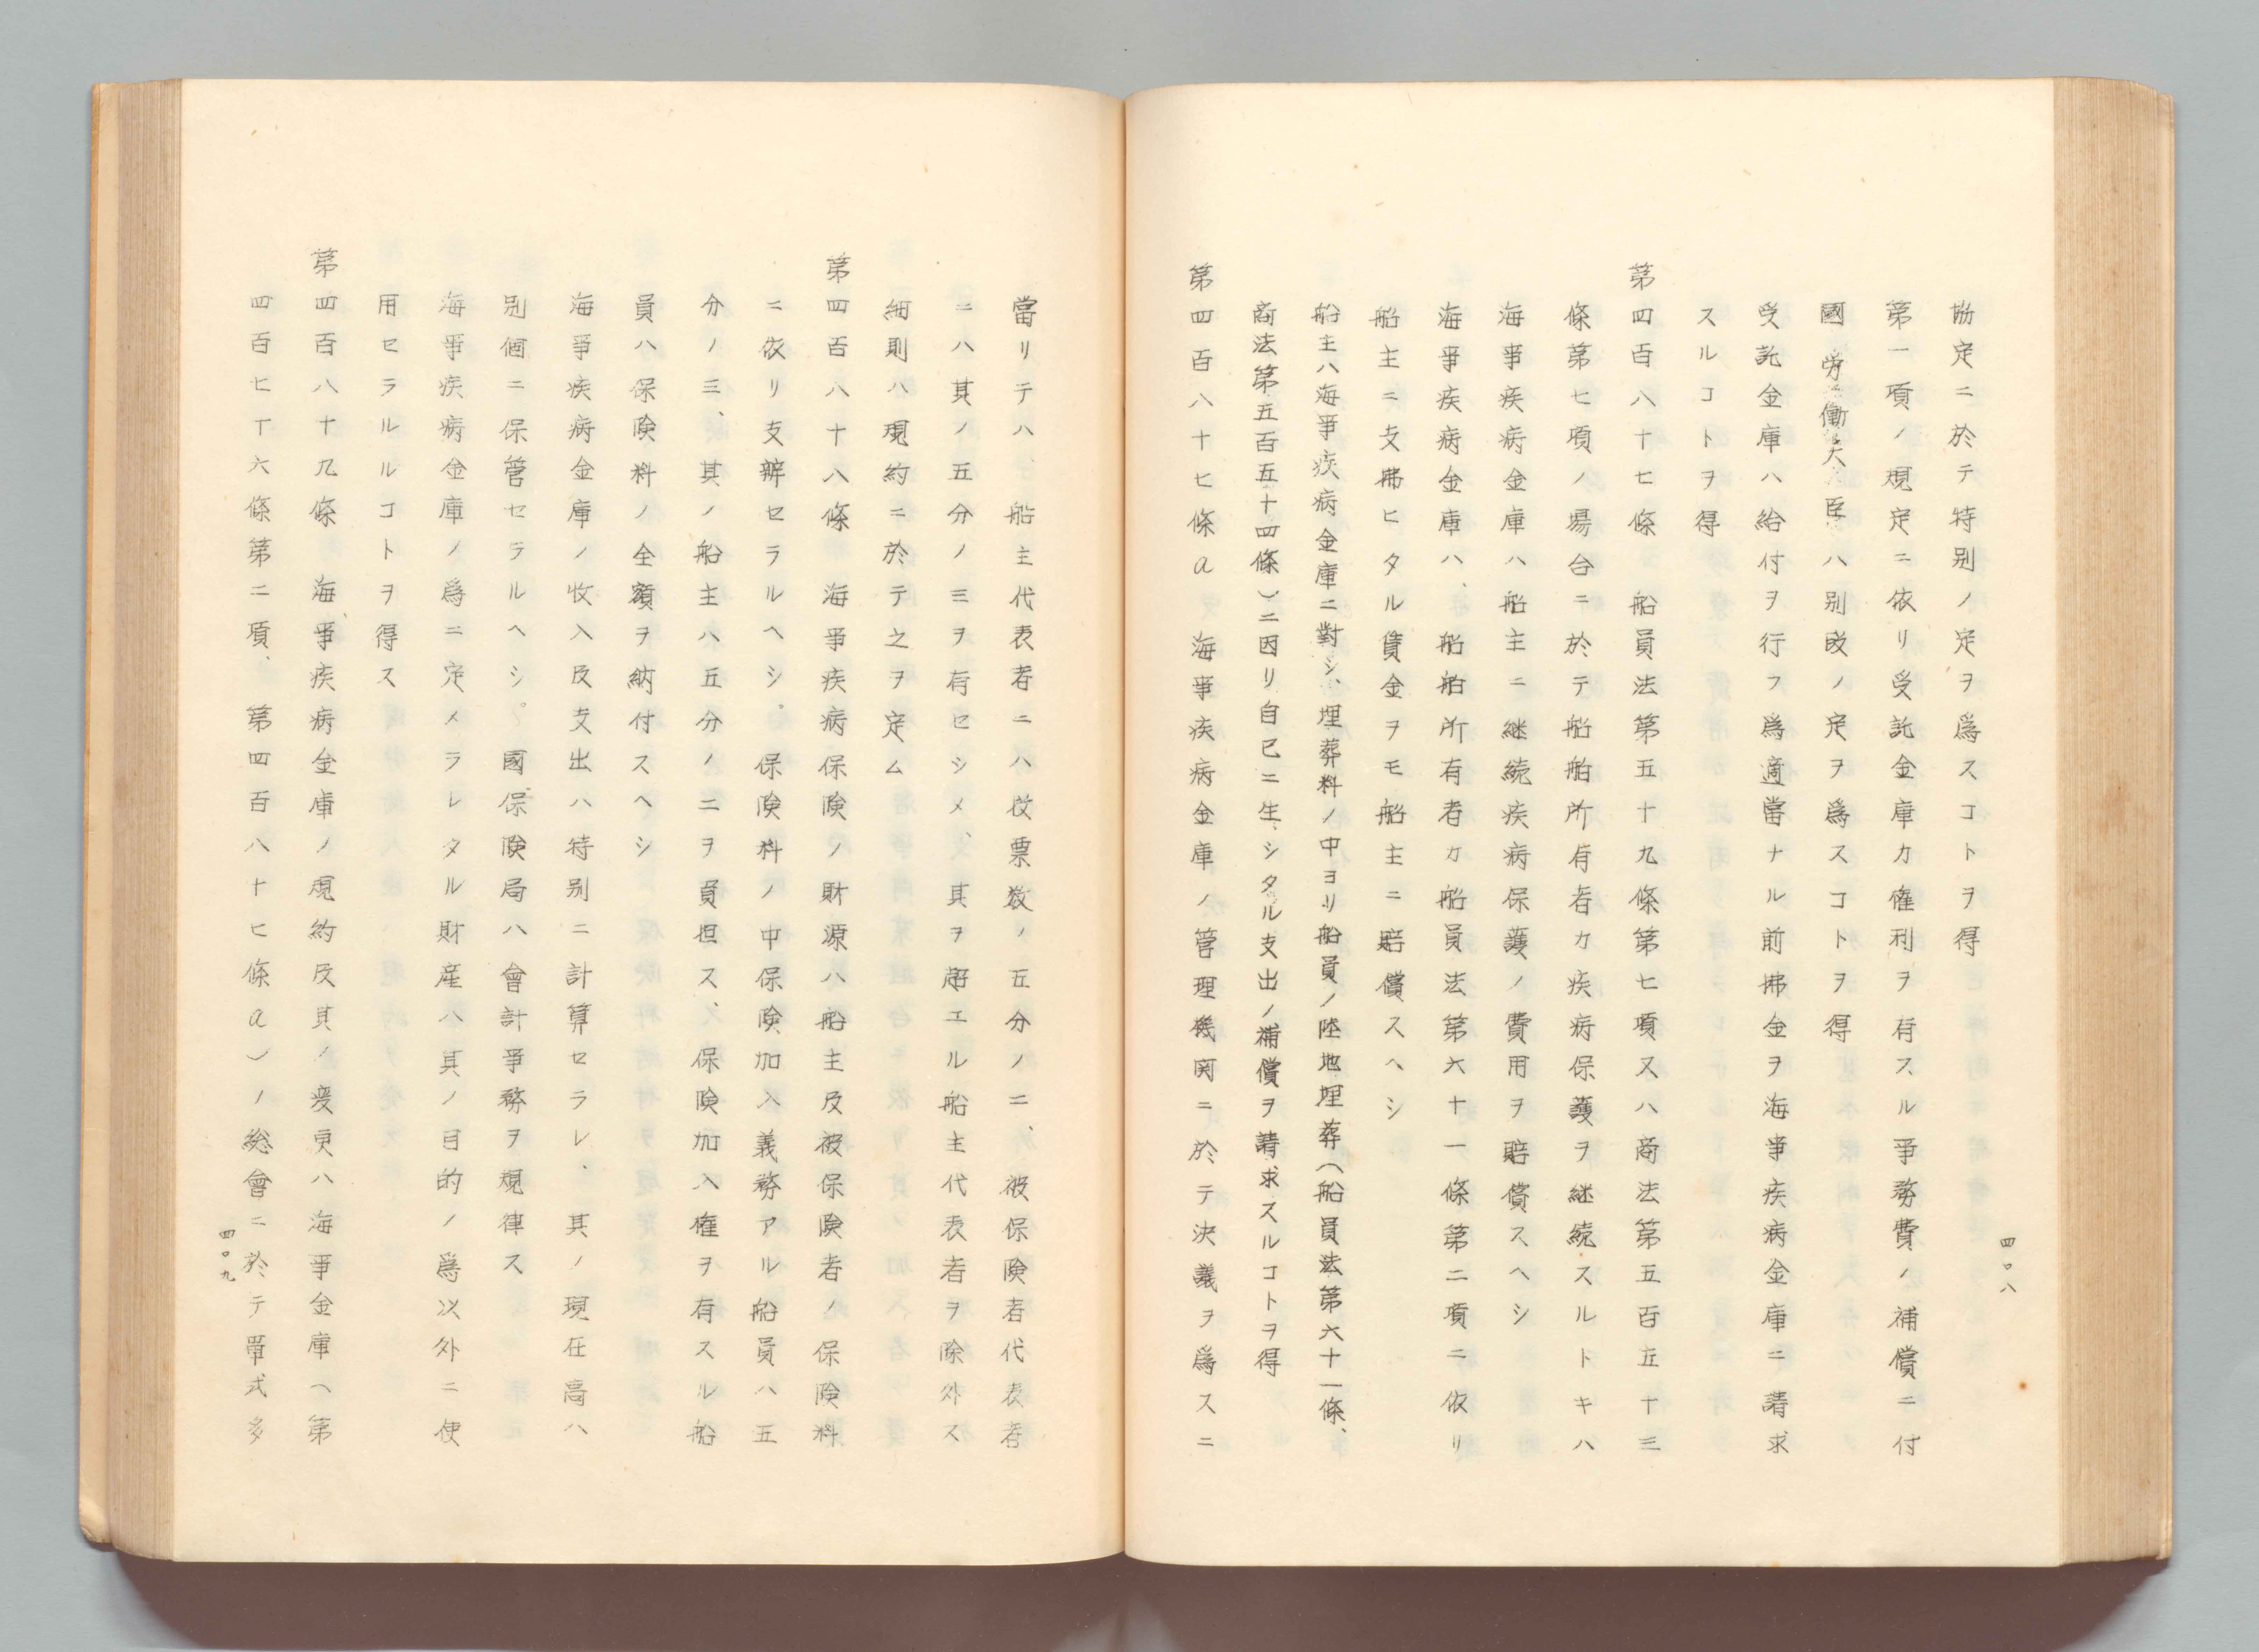 協定ニ於テ特別ノ定ヲ爲スコトヲ得
第一項ノ規定ニ依リ受託金庫カ權利ヲ有スル事務費ノ補償ニ付
國労働大臣ハ別段ノ定ヲ爲スコトヲ得
受託金庫ハ給付ヲ行フ爲適當ナル前拂金ヲ海事疾病金庫ニ請求
スルコトヲ得
第四百八十七條 船員法第五十九條第七項又ハ商法第五百五十三
條第七項ノ場合ニ於テ船舶所有者カ疾病保護ヲ継続スルトキハ
海事疾病金庫ハ船主ニ継続疾病保護ノ費用ヲ賠償スヘシ
海事疾病金庫ハ、船舶所有者カ船員法第六十一條第二項ニ依リ
船主ニ支拂ヒタル賃金ヲモ船主ニ賠償スヘシ
船主ハ海事疾病金庫ニ對シ、埋葬料ノ中ヨリ船員ノ陸地埋葬（船員法第六十一條、
商法第五百五十四條）ニ因リ自己ニ生シタル支出ノ補償ヲ請求スルコトヲ得
第四百八十七條a 海事疾病金庫ノ管理機関ニ於テ決議ヲ爲スニ
四〇八
當リテハ、船主代表者ニハ投票数ノ五分ノ二、被保険者代表者
ニハ其ノ五分ノ三ヲ有セシメ、其ヲ超エル船主代表者ヲ除外ス
細則ハ規約ニ於テ之ヲ定ム
第四百八十八條 海事疾病保険ノ財源ハ船主及被保険者ノ保険料
ニ依リ支辨セラルヘシ。保険料ノ中保険加入義務アル船員ハ五
分ノ三、其ノ船主ハ五分ノ二ヲ負担ス、保険加入權ヲ有スル船
員ハ保険料ノ全額ヲ納付スヘシ
海事疾病金庫ノ收入及支出ハ特別ニ計算セラレ、其ノ現在高ハ
別個ニ保管セラルヘシ。國保険局ハ會計事務ヲ規律ス
海事疾病金庫ノ爲ニ定メラレタル財産ハ其ノ目的ノ爲以外ニ使
用セラルルコトヲ得ス
第四百八十九條 海事疾病金庫ノ規約及其ノ変更ハ海事金庫（第
四百七十六條第二項、第四百八十七條a）ノ総會ニ於テ單式多
四〇九